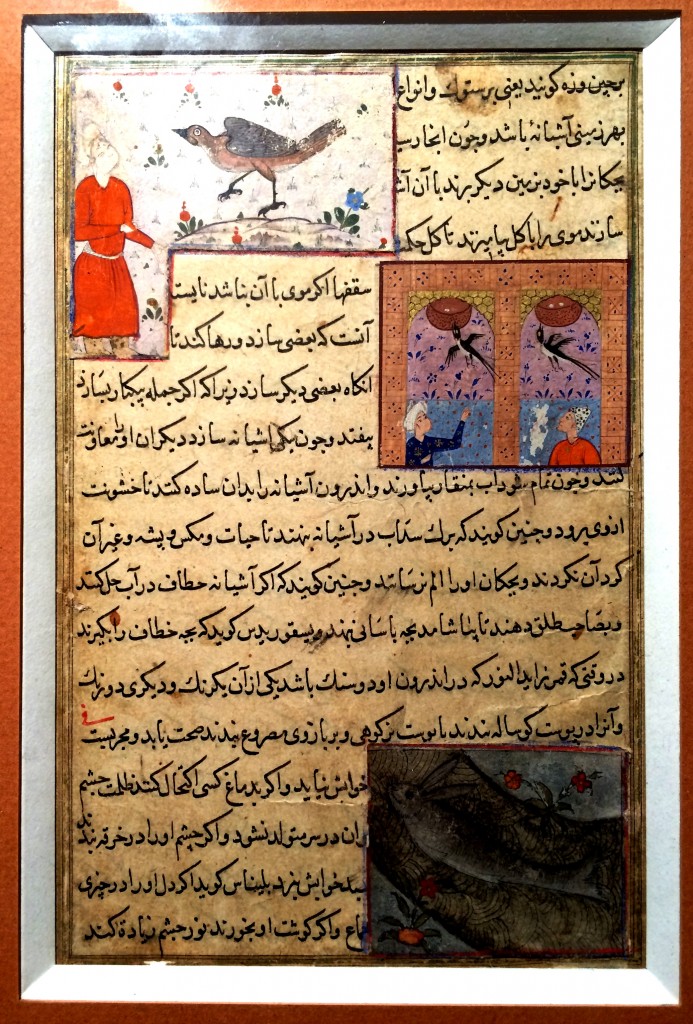 برچین وزه کویند یعنی پرستوك وانواع
بهر زمینی آشیانه باشد وچون انجا رسـ
بچکانرا با خود بزمین دیکر برند با آن آشـ
سازند موی را با کل بیامیزند تا کل حکـ
سقفها اکر موی با آن نباشد نایستا
آنست که بعضی سازد ورها کند تا
انکاه بعضی دیکر سازد زیرا که اکر جمله بیکبار بسازد
بیفتد وچون یکی اشیانه سازد دیکران اورا معاونت
کنند وچون تمام شود آب بمنقار بیاورند واندرون آشیانه را بدان ساده کنند تا خشونت
ازوی برود وچنین کویند که برك سداب در آشیانه بنهند تا حیات ومکس وپشه وغیر آن
کرد آن نکردند وبچکان اورا الم نرسانند وچنین کویند که اکر آشیانه خطاف در آب حل کنند
وبصاحب طلق دهند تا بیاشامد بچه باسانی بنهد ویسقوریدس کوید که بچه خطاف را بکیرند
در وقتی که قمر زاید النور که در اندرون او دو سنك باشد یکی از آن یکرنك ودیکری دو رنك
وآنرا در پوست کوساله بندند یا پوست بزکوهی وبر بازوی مصروع بندند صحت یابد ومجربست
خوابش نیاید واکر بدماغ کسی اکتحال کنند ظلمت چشم
ان در سر متولد نشود واکر چشم اورا در خرقه بندند
خوابش نبرد بلیناس کوید اکر دل اورا در چیزی
ماع واکر کوشت او بخورند نور چشم زیاده کند